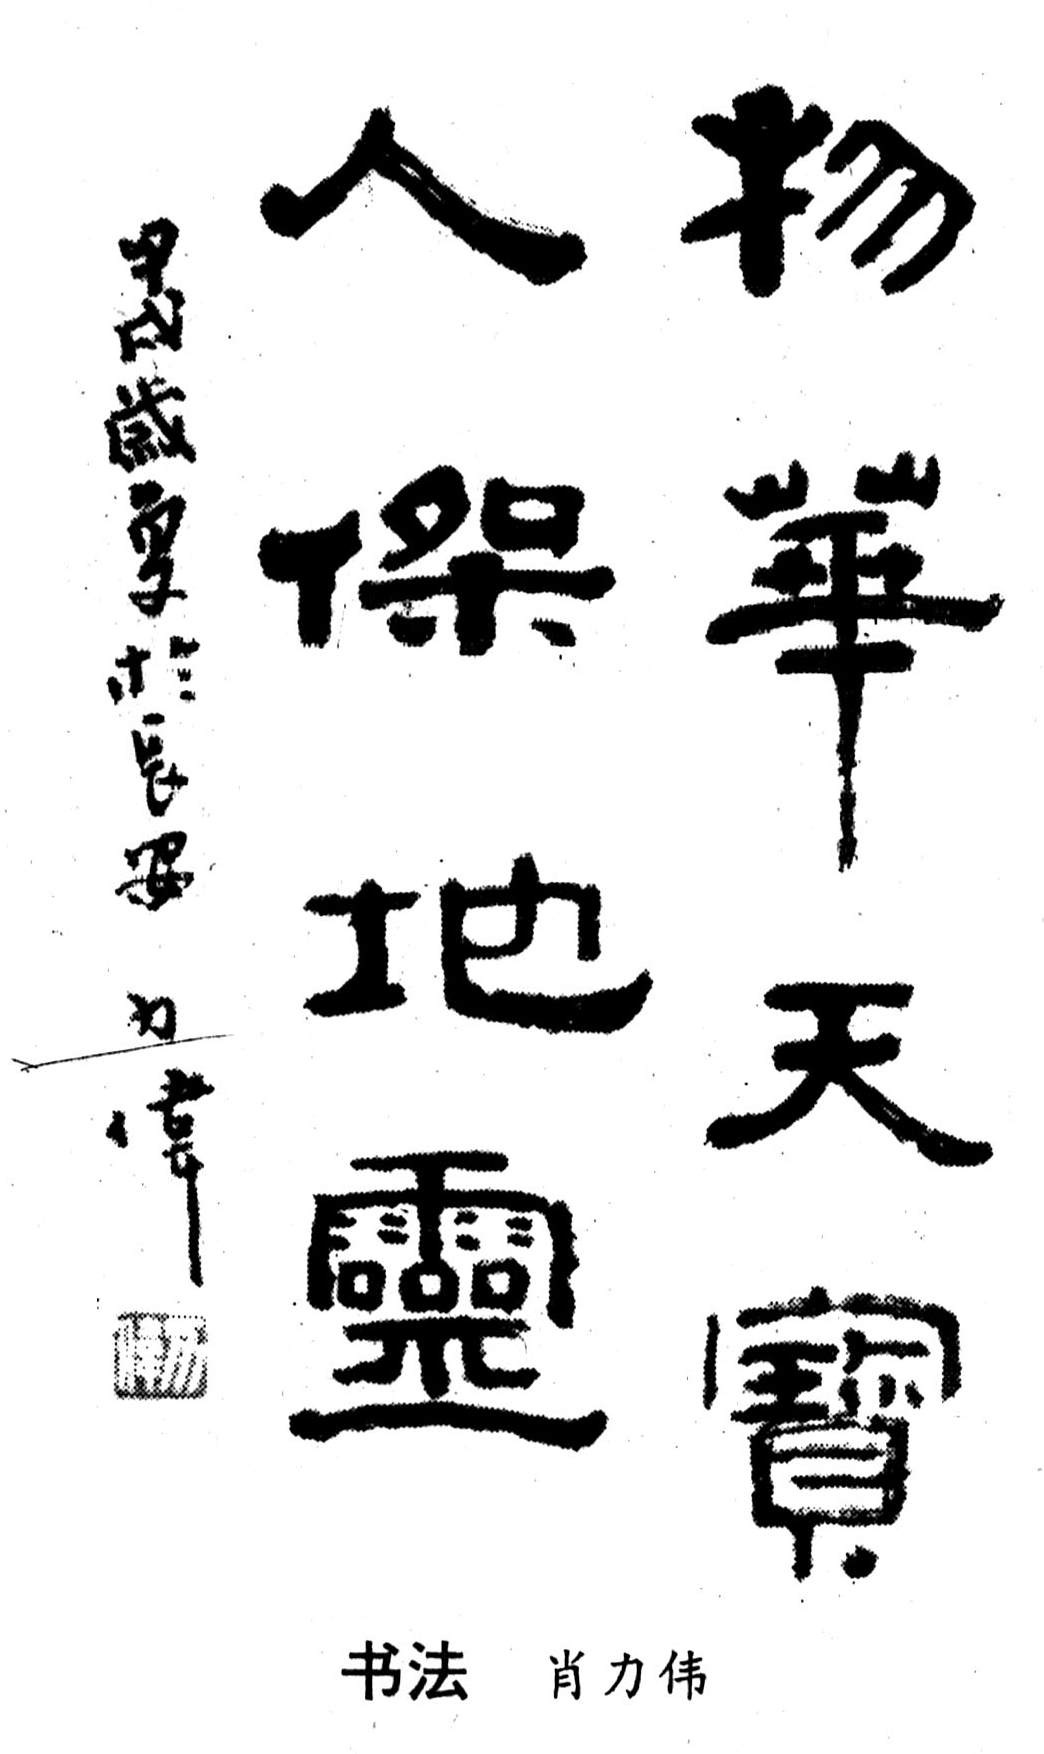 物華天寶
人傑地靈
甲戌歲夏於長安 力偉
力偉
书法 肖力伟